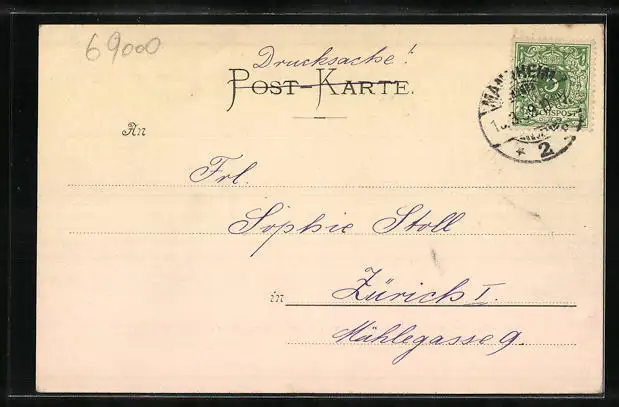 69000
Drucksache!
POST-KARTE.
MANNHEIM
2
An
Frl.
Sophie Stoll
in Zürich I.
Mühlegasse 9.